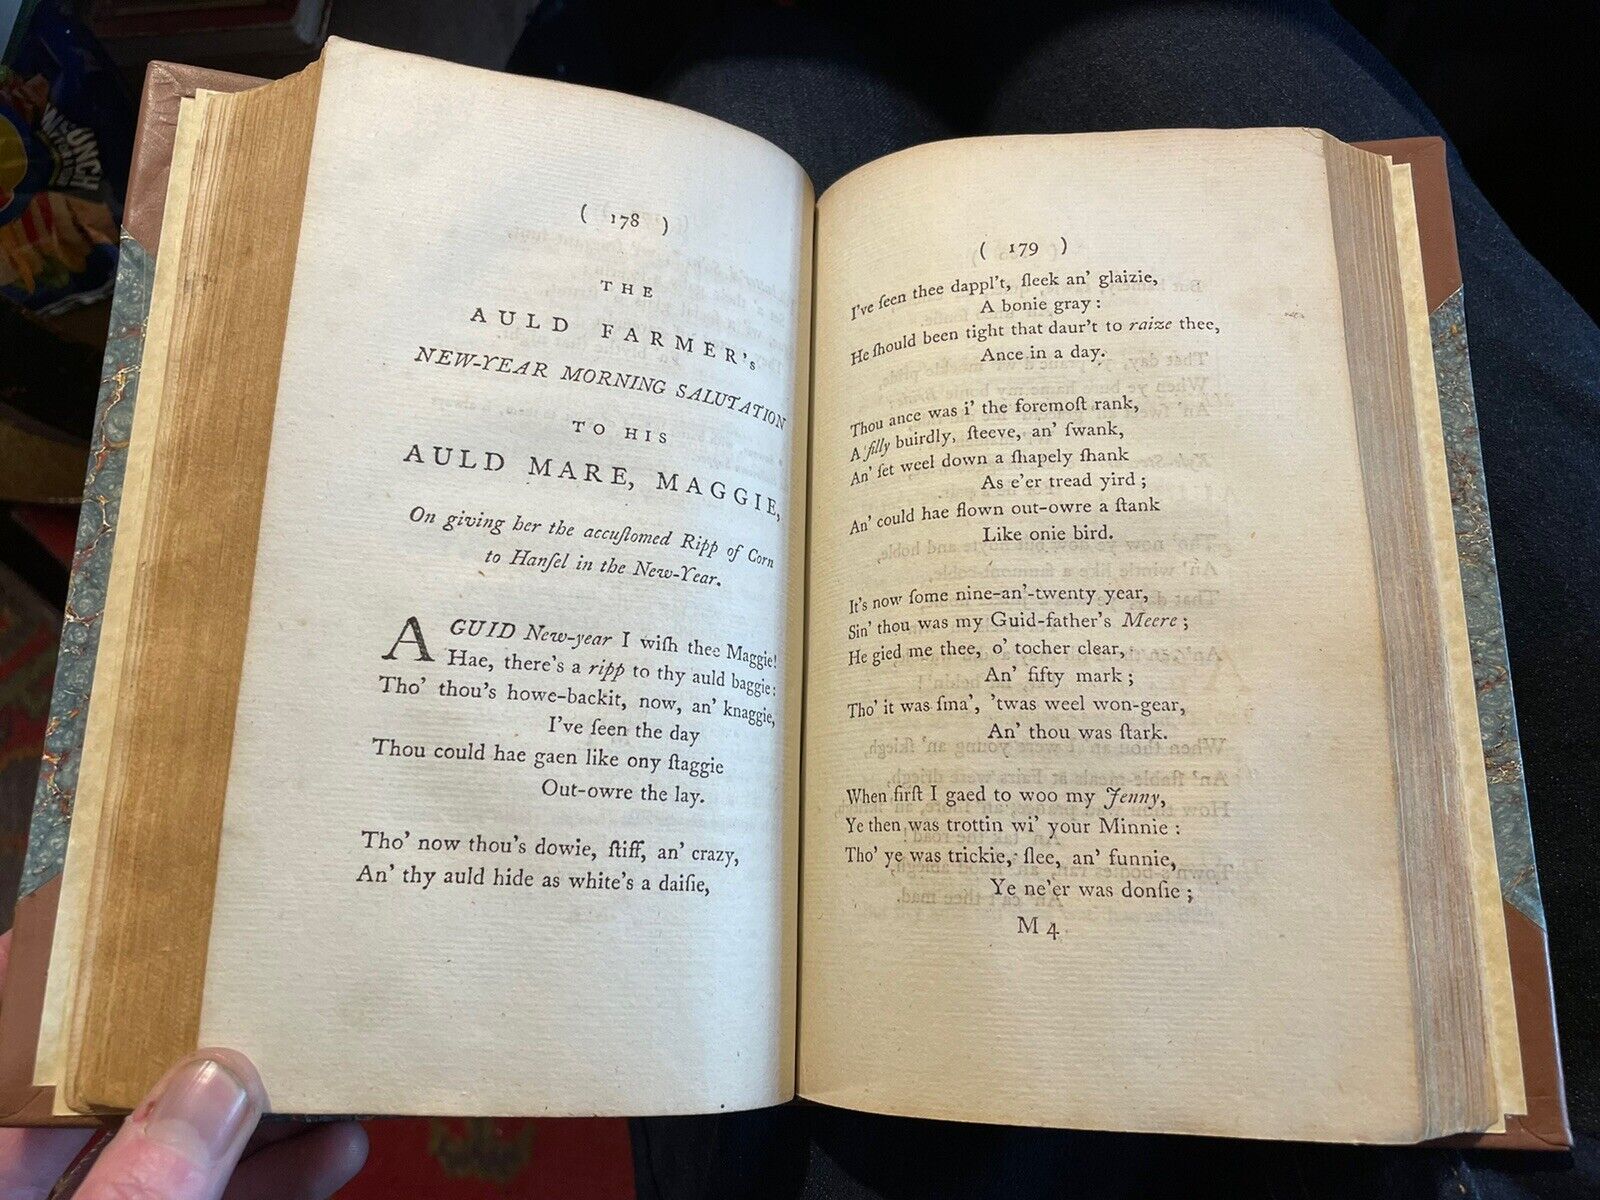 ( 178 )
THE
AULD FARMER's
NEW-YEAR MORNING SALUTATION
TO HIS
AULD MARE, MAGGIE,
On giving her the accuſtomed Ripp of Corn
to Hanſel in the New-Year.
A GUID New-year I wiſh thee Maggie!
Hae, there's a ripp to thy auld baggie:
Tho' thou's howe-backit, now, an' knaggie,
I've ſeen the day
Thou could hae gaen like ony ſtaggie
Out-owre the lay.
Tho' now thou's dowie, ſtiff, an' crazy,
An' thy auld hide as white's a daiſie,
( 179 )
I've ſeen thee dappl't, ſleek an' glaizie,
A bonie gray:
He ſhould been tight that daur't to raize thee,
Ance in a day.
Thou ance was i' the foremoſt rank,
A filly buirdly, ſteeve, an' ſwank,
An' ſet weel down a ſhapely ſhank
As e'er tread yird;
An' could hae flown out-owre a ſtank
Like onie bird.
It's now ſome nine-an'-twenty year,
Sin' thou was my Guid-father's Meere;
He gied me thee, o' tocher clear,
An' fifty mark;
Tho' it was ſma', 'twas weel won-gear,
An' thou was ſtark.
When firſt I gaed to woo my Jenny,
Ye then was trottin wi' your Minnie:
Tho' ye was trickie, ſlee, an' funnie,
Ye ne'er was donſie;
M 4